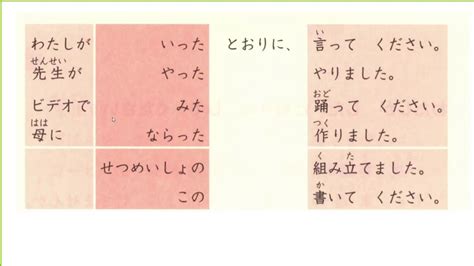 わたしが いった とおりに、 言って ください。
先生が やった やりました。
ビデオで みた 踊って ください。
母に ならった 作りました。
せつめいしょの 組み立てました。
この 書いて ください。